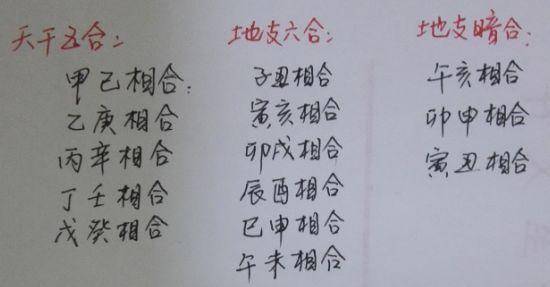 天干五合：
甲己相合：
乙庚相合
丙辛相合
丁壬相合
戊癸相合
地支六合：
子丑相合
寅亥相合
卯戌相合
辰酉相合
巳申相合
午未相合
地支暗合：
午亥相合
卯申相合
寅丑相合